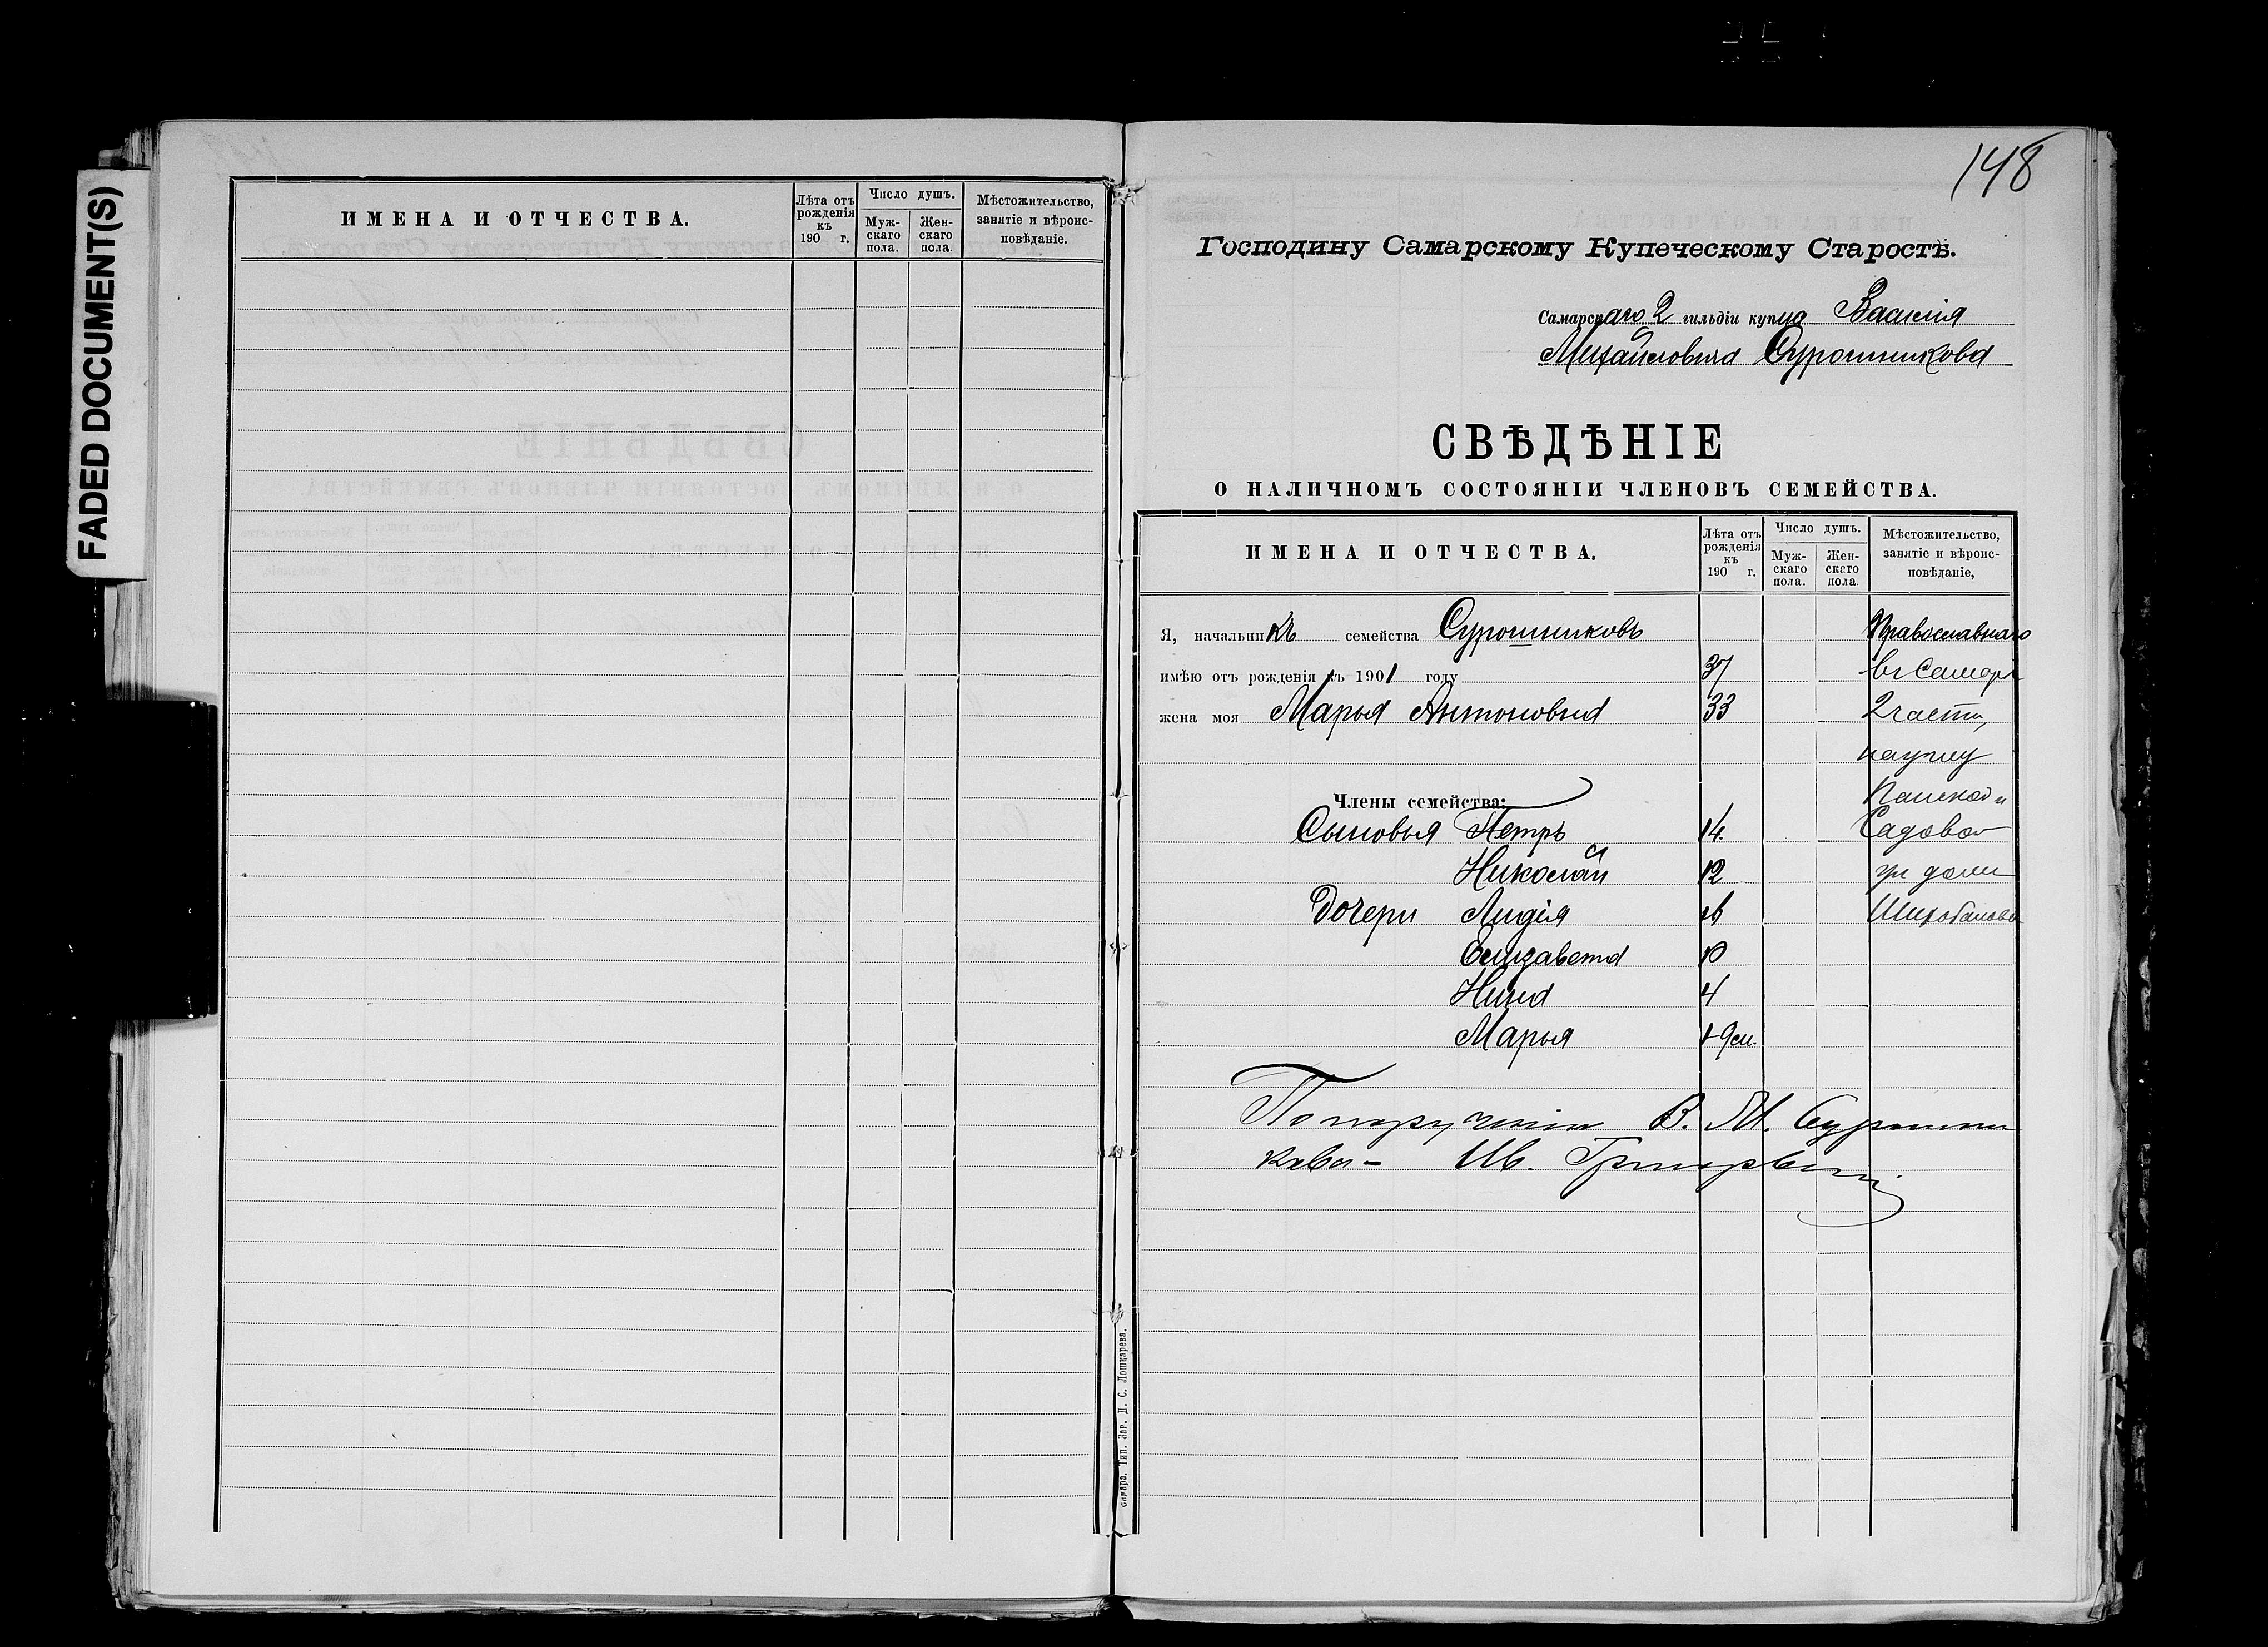 FADED DOCUMENT(S)
ИМЕНА И ОТЧЕСТВА.
Лѣта отъ рожденія къ 190 г.
Число душъ.
Муж-скаго пола.
Жен-скаго пола.
Мѣстожительство, занятіе и вѣроис-повѣданіе.
148
Господину Самарскому Купеческому Старостѣ.
Самарскаго 2 гильдіи купца Василія
Михайловича Сурошникова
СВѢДѢНІЕ
О НАЛИЧНОМЪ СОСТОЯНІИ ЧЛЕНОВЪ СЕМЕЙСТВА.
ИМЕНА И ОТЧЕСТВА.
Лѣта отъ рожденія къ 190 г.
Число душъ.
Муж-скаго пола.
Жен-скаго пола.
Мѣстожительство, занятіе и вѣроис-повѣданіе,
Я, начальникъ семейства Сурошниковъ Православнаго
имѣю отъ рожденія къ 1901 году 37 въ Самарѣ
жена моя Марья Антоновна 33 2 части,
на углу
Члены семейства: Панской и
Сыновья Петръ 14. Садовой
Николай 12 ул доми
Дочери Лидія 16 Шихобалова
Елизавета 10
Нина 4
Марья 9 м.
По порученію В. М. Сурошни
кова - Ив.
Самара. Тип. Заг. Д. С. Лошкарева.